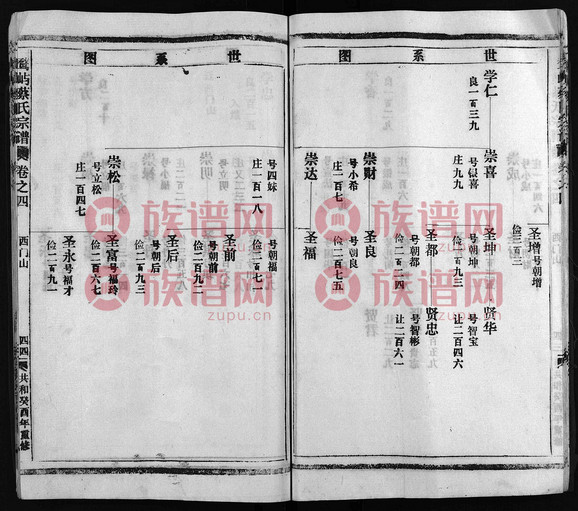 世系图
学仁
良一百三九
圣增
号朝增
俭二百三
崇喜
号银喜
庄九九
圣坤
号朝坤
俭一百九三
贤华
号智宝
让二百四六
圣都
号朝都
俭二百六二
贤忠
号智彬
让二百六一
崇财
号小希
庄一百七
圣良
号朝良
俭二百七五
崇达
圣福
世系图
号四妹
庄一百一八
号朝福
俭二百七一
圣前
号朝前
俭二百九二
圣后
号朝后
俭二百九三
崇松
号立松
庄一百四七
圣富
号福玲
俭二百六七
圣永
号福才
俭二百九一
屿蔡氏宗谱
卷之四
西门山
四四
共和癸酉年重修
族谱网
zupu.cn